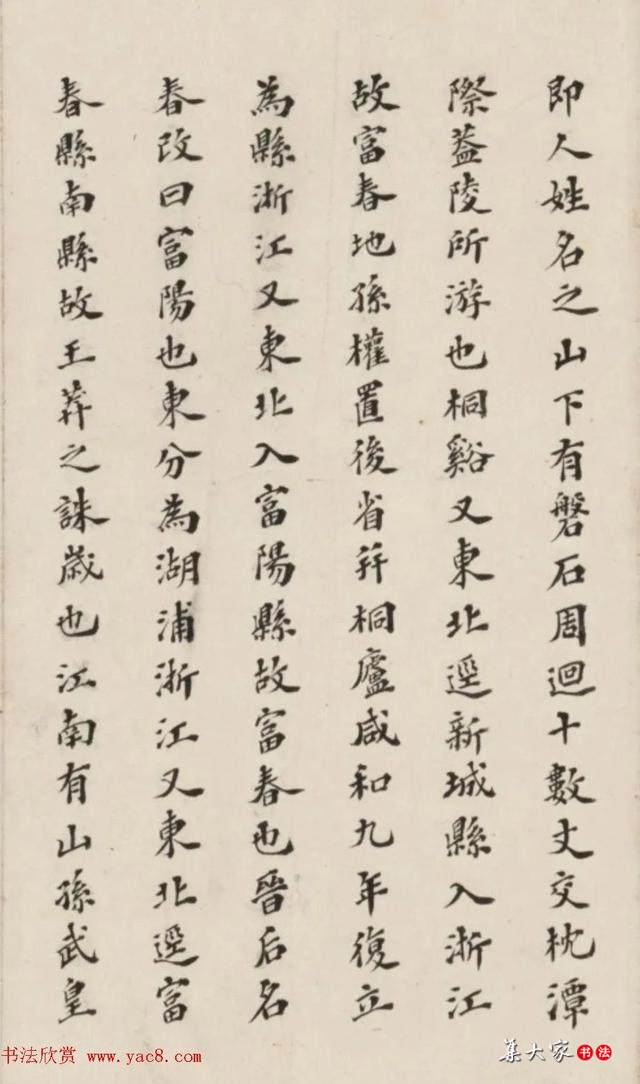 即人姓名之山下有磐石周迴十數丈交枕潭
際葢陵所游也桐谿又東北逕新城縣入浙江
故富春地孫權置後省并桐廬咸和九年復立
為縣浙江又東北入富陽縣故富春也晉后名
春改曰富陽也東分為湖浦浙江又東北逕富
春縣南縣故王莽之誅歲也江南有山孫武皇
书法欣赏 www.yac8.com
集大家书法